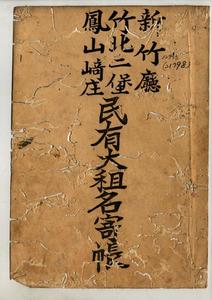 新竹廳
竹北二堡
鳳山崎庄
民有大租名寄帳